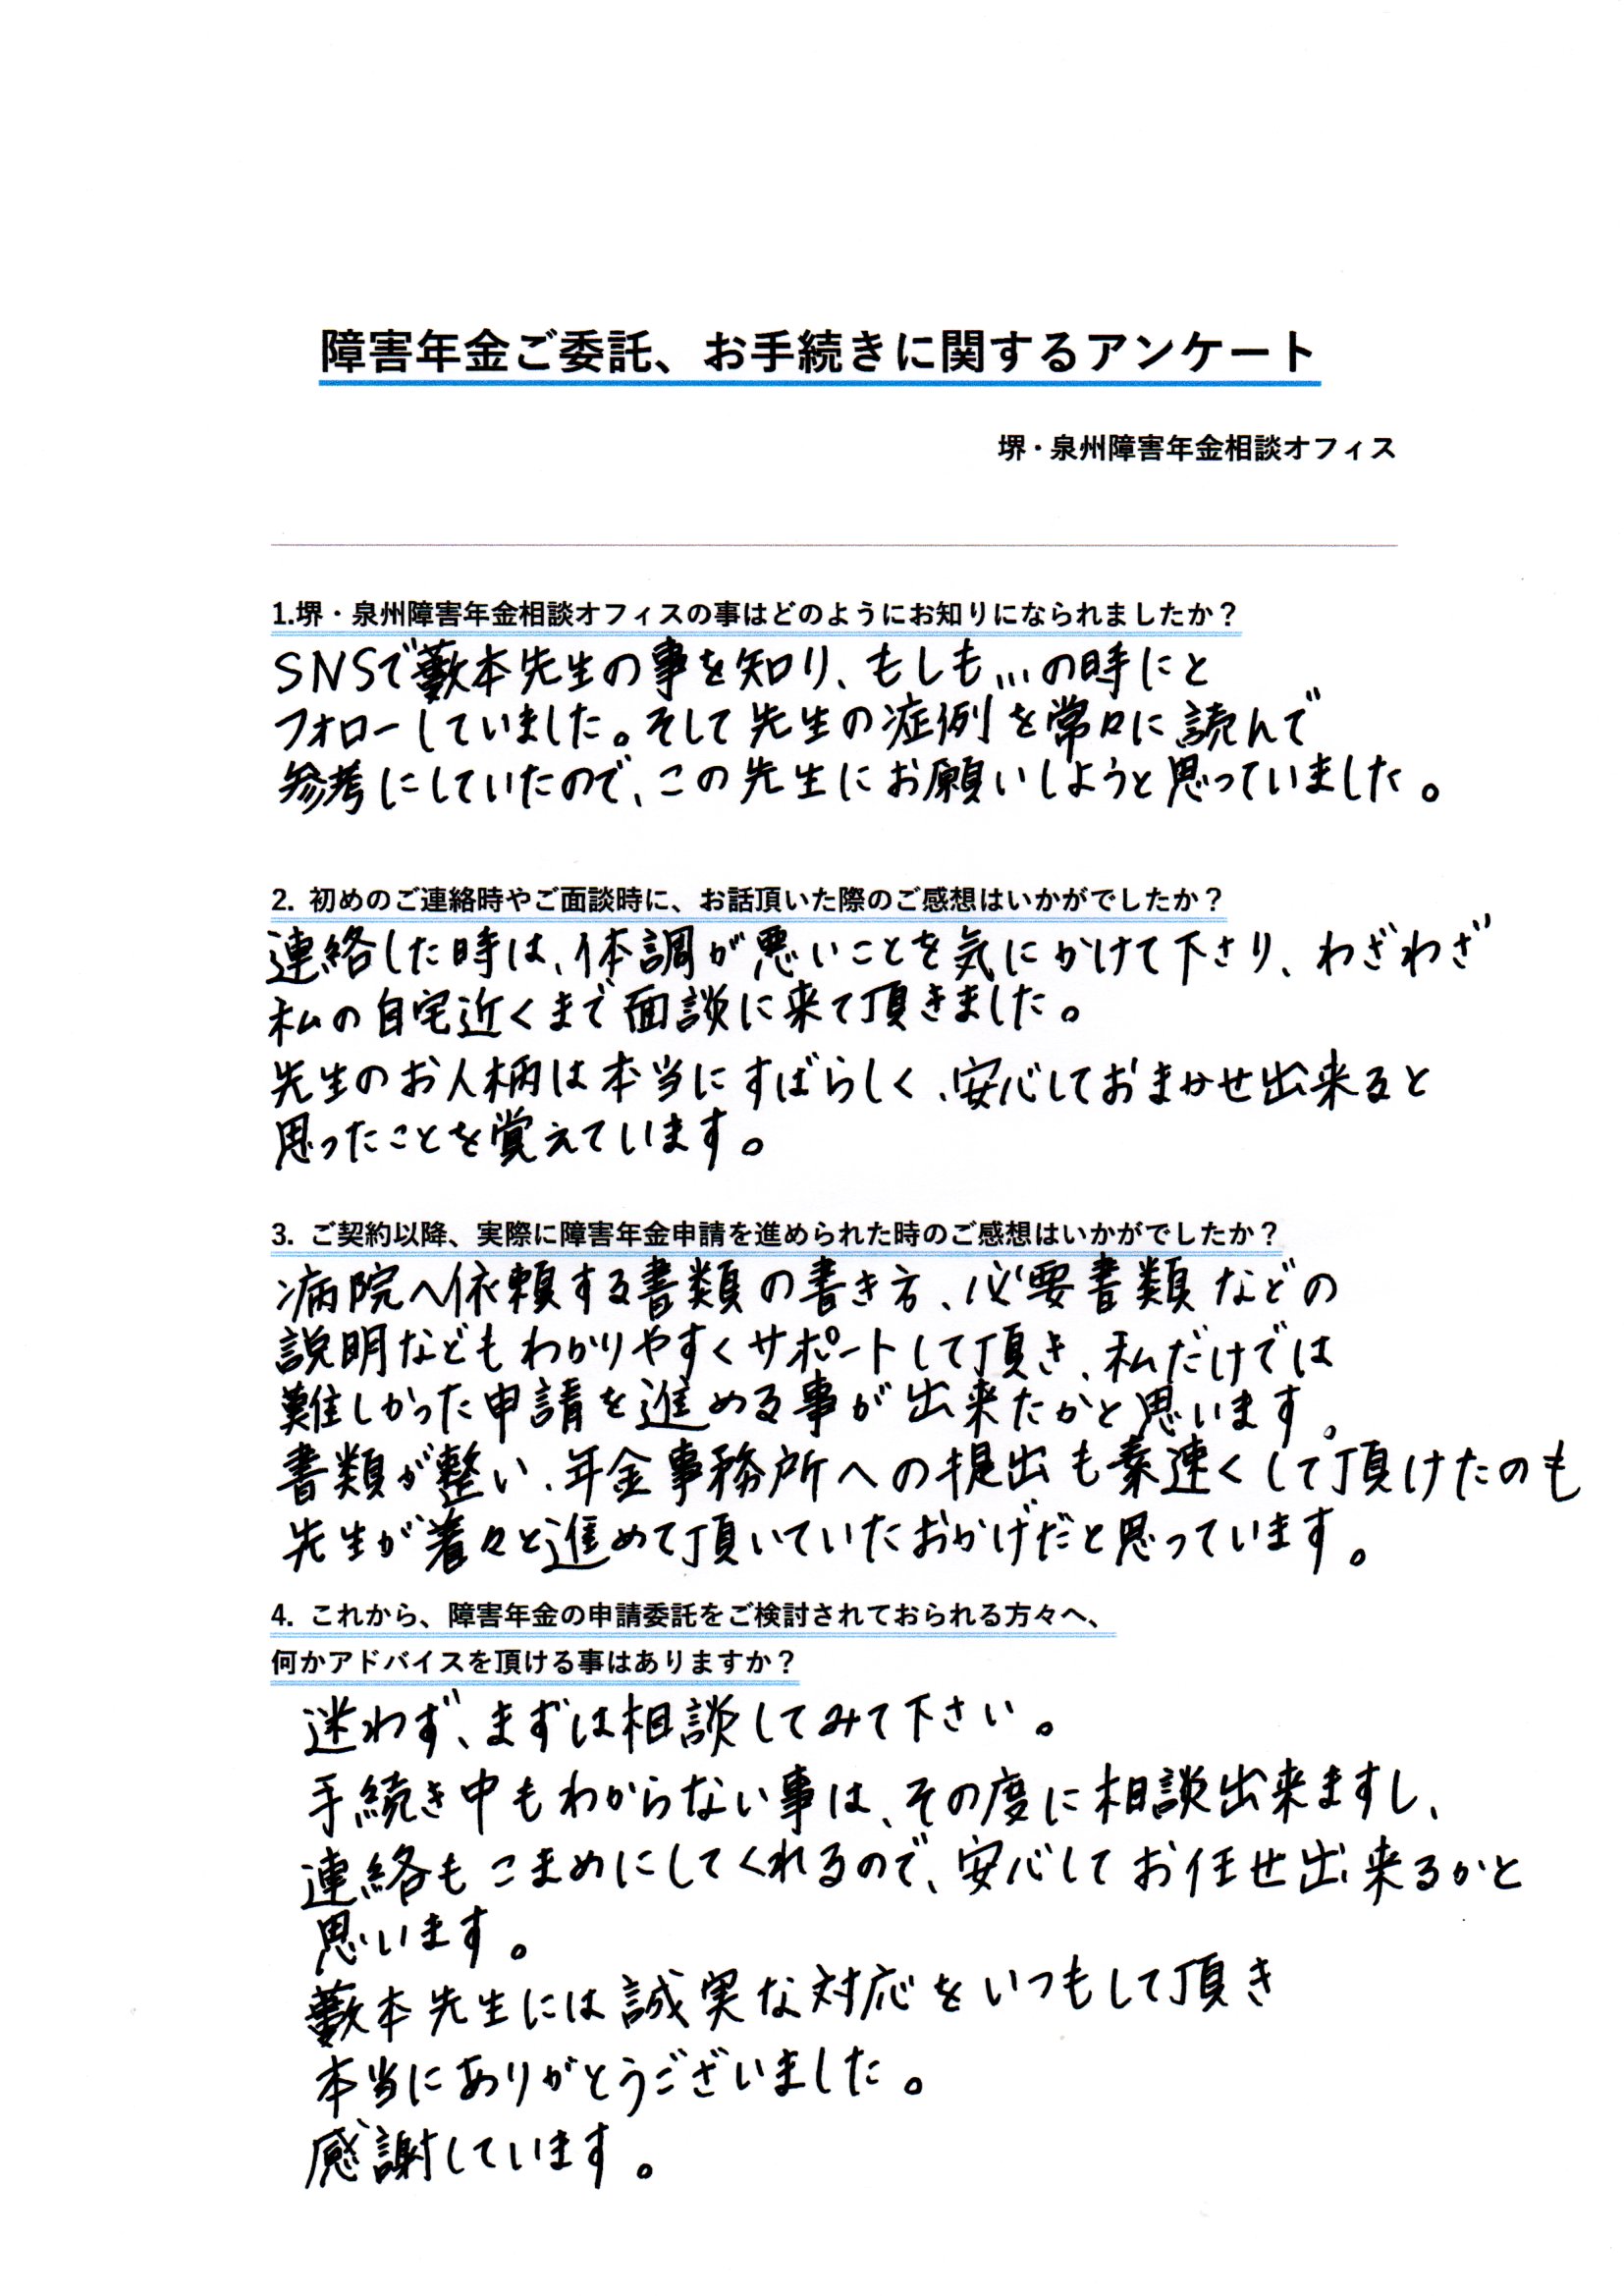 障害年金ご委託、お手続きに関するアンケート
堺・泉州障害年金相談オフィス
1.堺・泉州障害年金相談オフィスの事はどのようにお知りになられましたか？
SNSで藪本先生の事を知り、もしも…の時にと
フォローしていました。そして先生の症例を常々に読んで
参考にしていたので、この先生にお願いしようと思っていました。
2. 初めのご連絡時やご面談時に、お話頂いた際のご感想はいかがでしたか？
連絡した時は、体調が悪いことを気にかけて下さり、わざわざ
私の自宅近くまで面談に来て頂きました。
先生のお人柄は本当にすばらしく、安心しておまかせ出来ると
思ったことを覚えています。
3. ご契約以降、実際に障害年金申請を進められた時のご感想はいかがでしたか？
病院へ依頼する書類の書き方、必要書類などの
説明などもわかりやすくサポートして頂き、私だけでは
難しかった申請を進める事が出来たかと思います。
書類が整い、年金事務所への提出も素速くして頂けたのも
先生が着々と進めて頂いていたおかげだと思っています。
4. これから、障害年金の申請委託をご検討されておられる方々へ、
何かアドバイスを頂ける事はありますか？
迷わず、まずは相談してみて下さい。
手続き中もわからない事は、その度に相談出来ますし、
連絡もこまめにしてくれるので、安心してお任せ出来るかと
思います。
藪本先生には誠実な対応をいつもして頂き
本当にありがとうございました。
感謝しています。